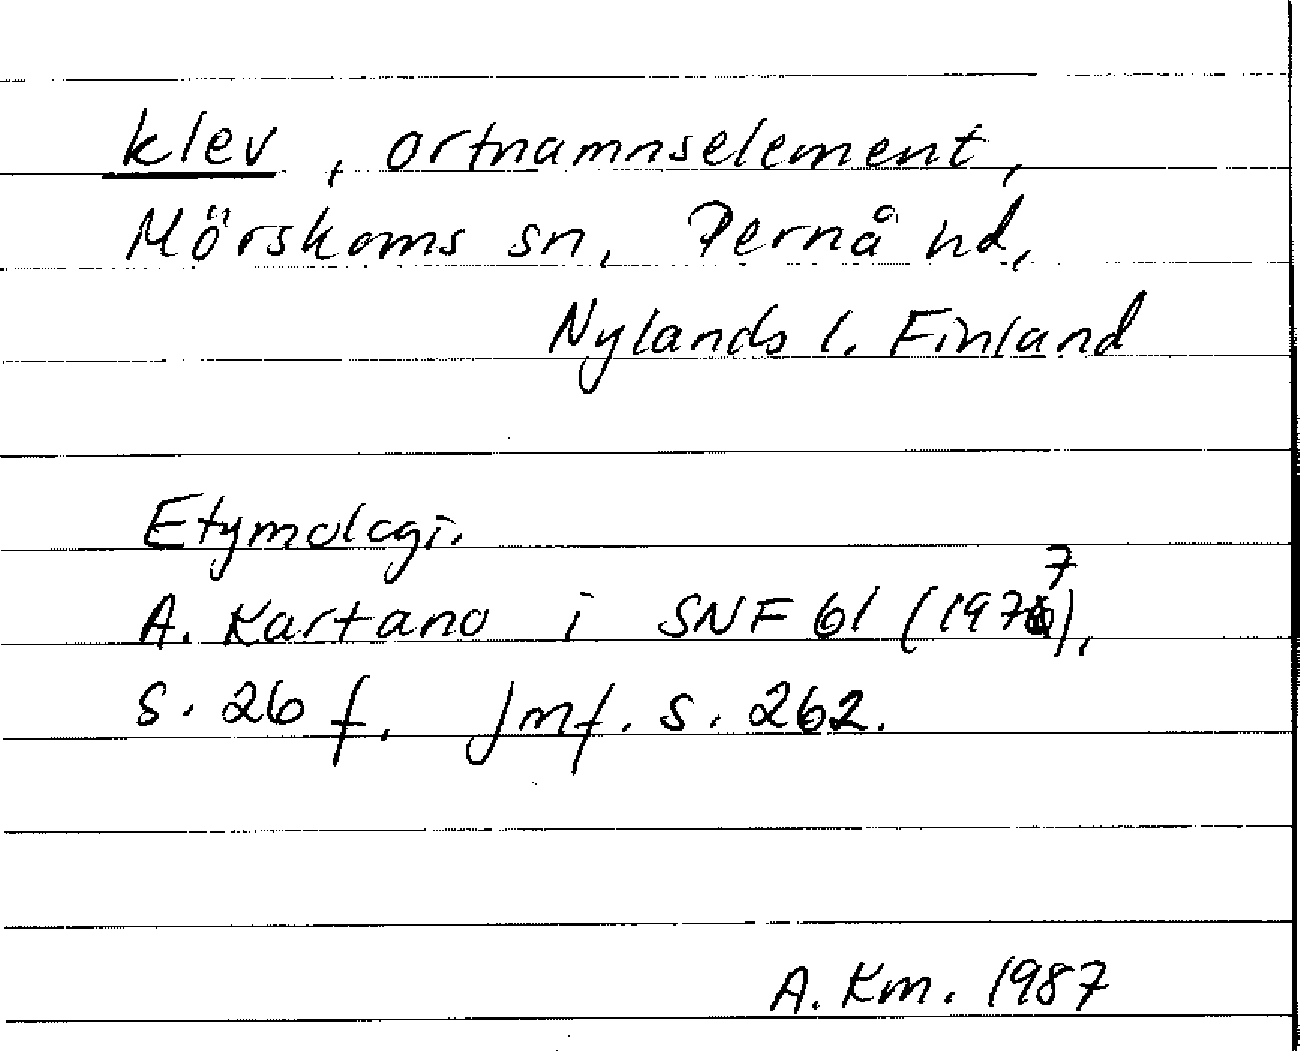 klev, ortnamnselement,
Mörskoms sn, Pernå hd,
Nylands l. Finland
Etymologi.
A. Kartano i SNF 61 (1977),
s. 26 f. Jmf. s. 262.
A. Km. 1987